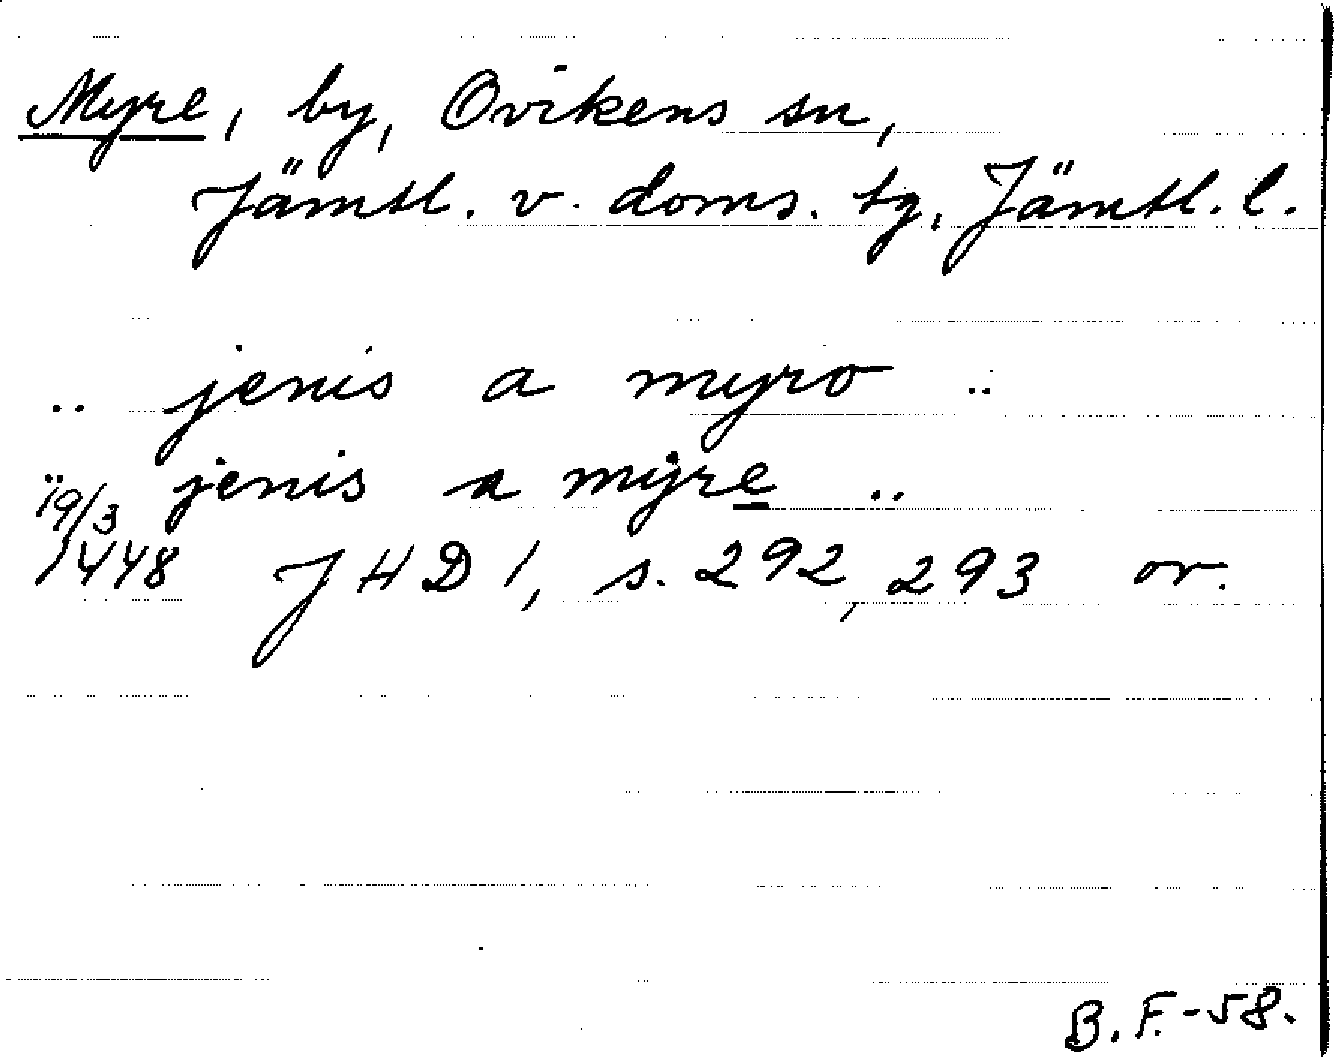 Myre, by, Ovikens sn,
Jämtl. v. doms. tg, Jämtl. l.
.. jenis a myro ..
.. jenis a myre ..
19/3
1448 JHD 1, s. 292, 293 or.
B.F.-58.